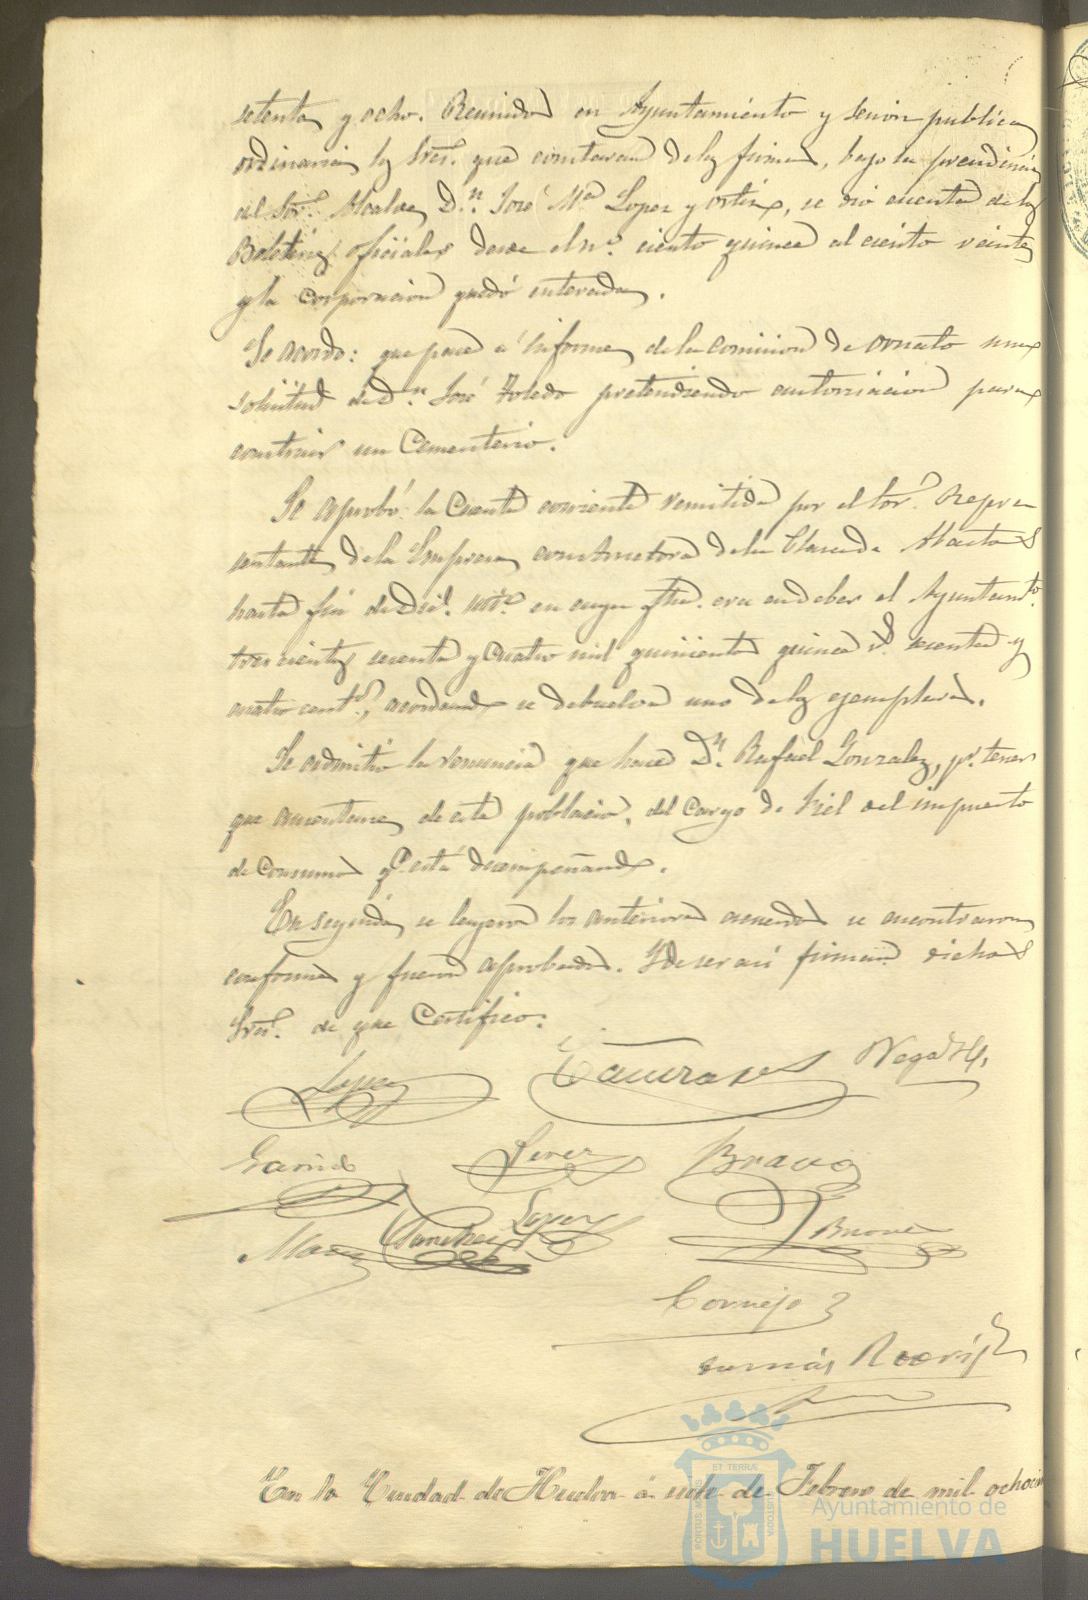 setenta y ocho. Reunidos en Ayuntamiento y sesion publica
ordinaria los Sres. que constaran de las firmas, bajo la presidencia
del Sor. Alcalde D.n José Ma Lopez y Ortiz, se dió cuenta de los
Boletines oficiales desde el n.o ciento quince al ciento veinte
y la corporacion quedó enterada.
Se acordo: que pase á informe de la comision de ornato una
solicitud de D.n José Toledo pretendiendo autorizacion para
construir un Cementerio.
Se aprobó la Cuenta corriente remitida por el Sor. Repre
sentante de la Empresa constructora de la Plaza de Abastos
hasta fin de Dic. en cuya fha. era en deber el Ayuntamto.
trescientos sesenta y cuatro mil quinientos quince rs. sesenta y
cuatro cents, acordando se debuelva uno de los ejemplares.
Se admitió la renuncia que hace D.n Rafael Gonzalez, pr. tener
que ausentarse de esta poblacion, del cargo de Fiel del impuesto
de Consumos q.e está desempeñando.
En seguida se leyeron los anteriores acuerdos se encontraron
conformes y fueron aprobados. Y de ser asi firman dichos
Sres. de que Certifico:
Lopez Vega H.
Garrido Perez Bravo
Sanchez Lopez
Cornejo
Tomás Rodríg
En la Ciudad de Huelva á siete de Febrero de mil ochocien
ET TERRÆ
PORTUS MARIS
CUSTODIA
Ayuntamiento de
HUELVA